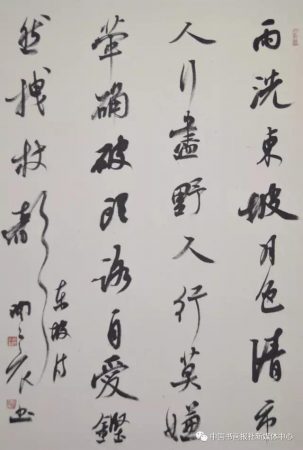 雨洗東坡月色清市
人行盡野人行莫嫌
犖确坡頭路自愛鏗
然拽杖聲
東坡詩
書
中国书画报社新媒体中心